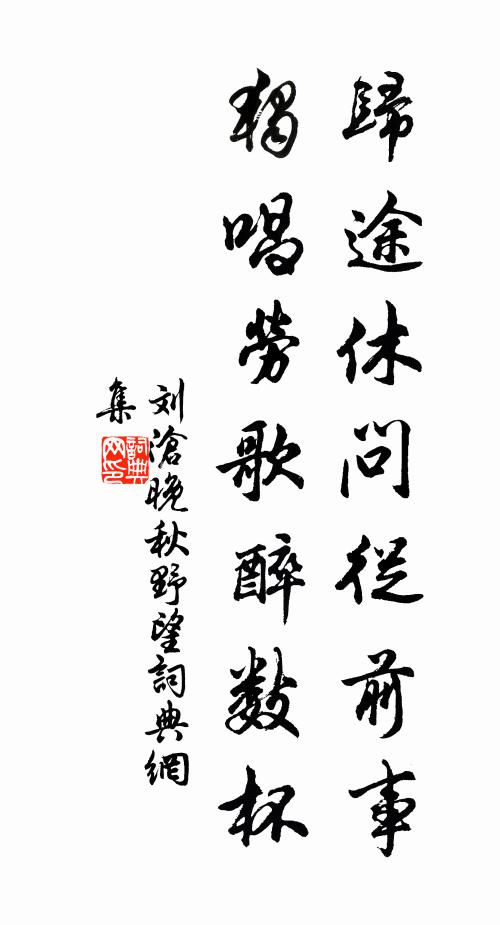 歸途休問從前事
獨唱勞歌醉數杯
刘滄晚秋野望詞典網
集
詞典网印